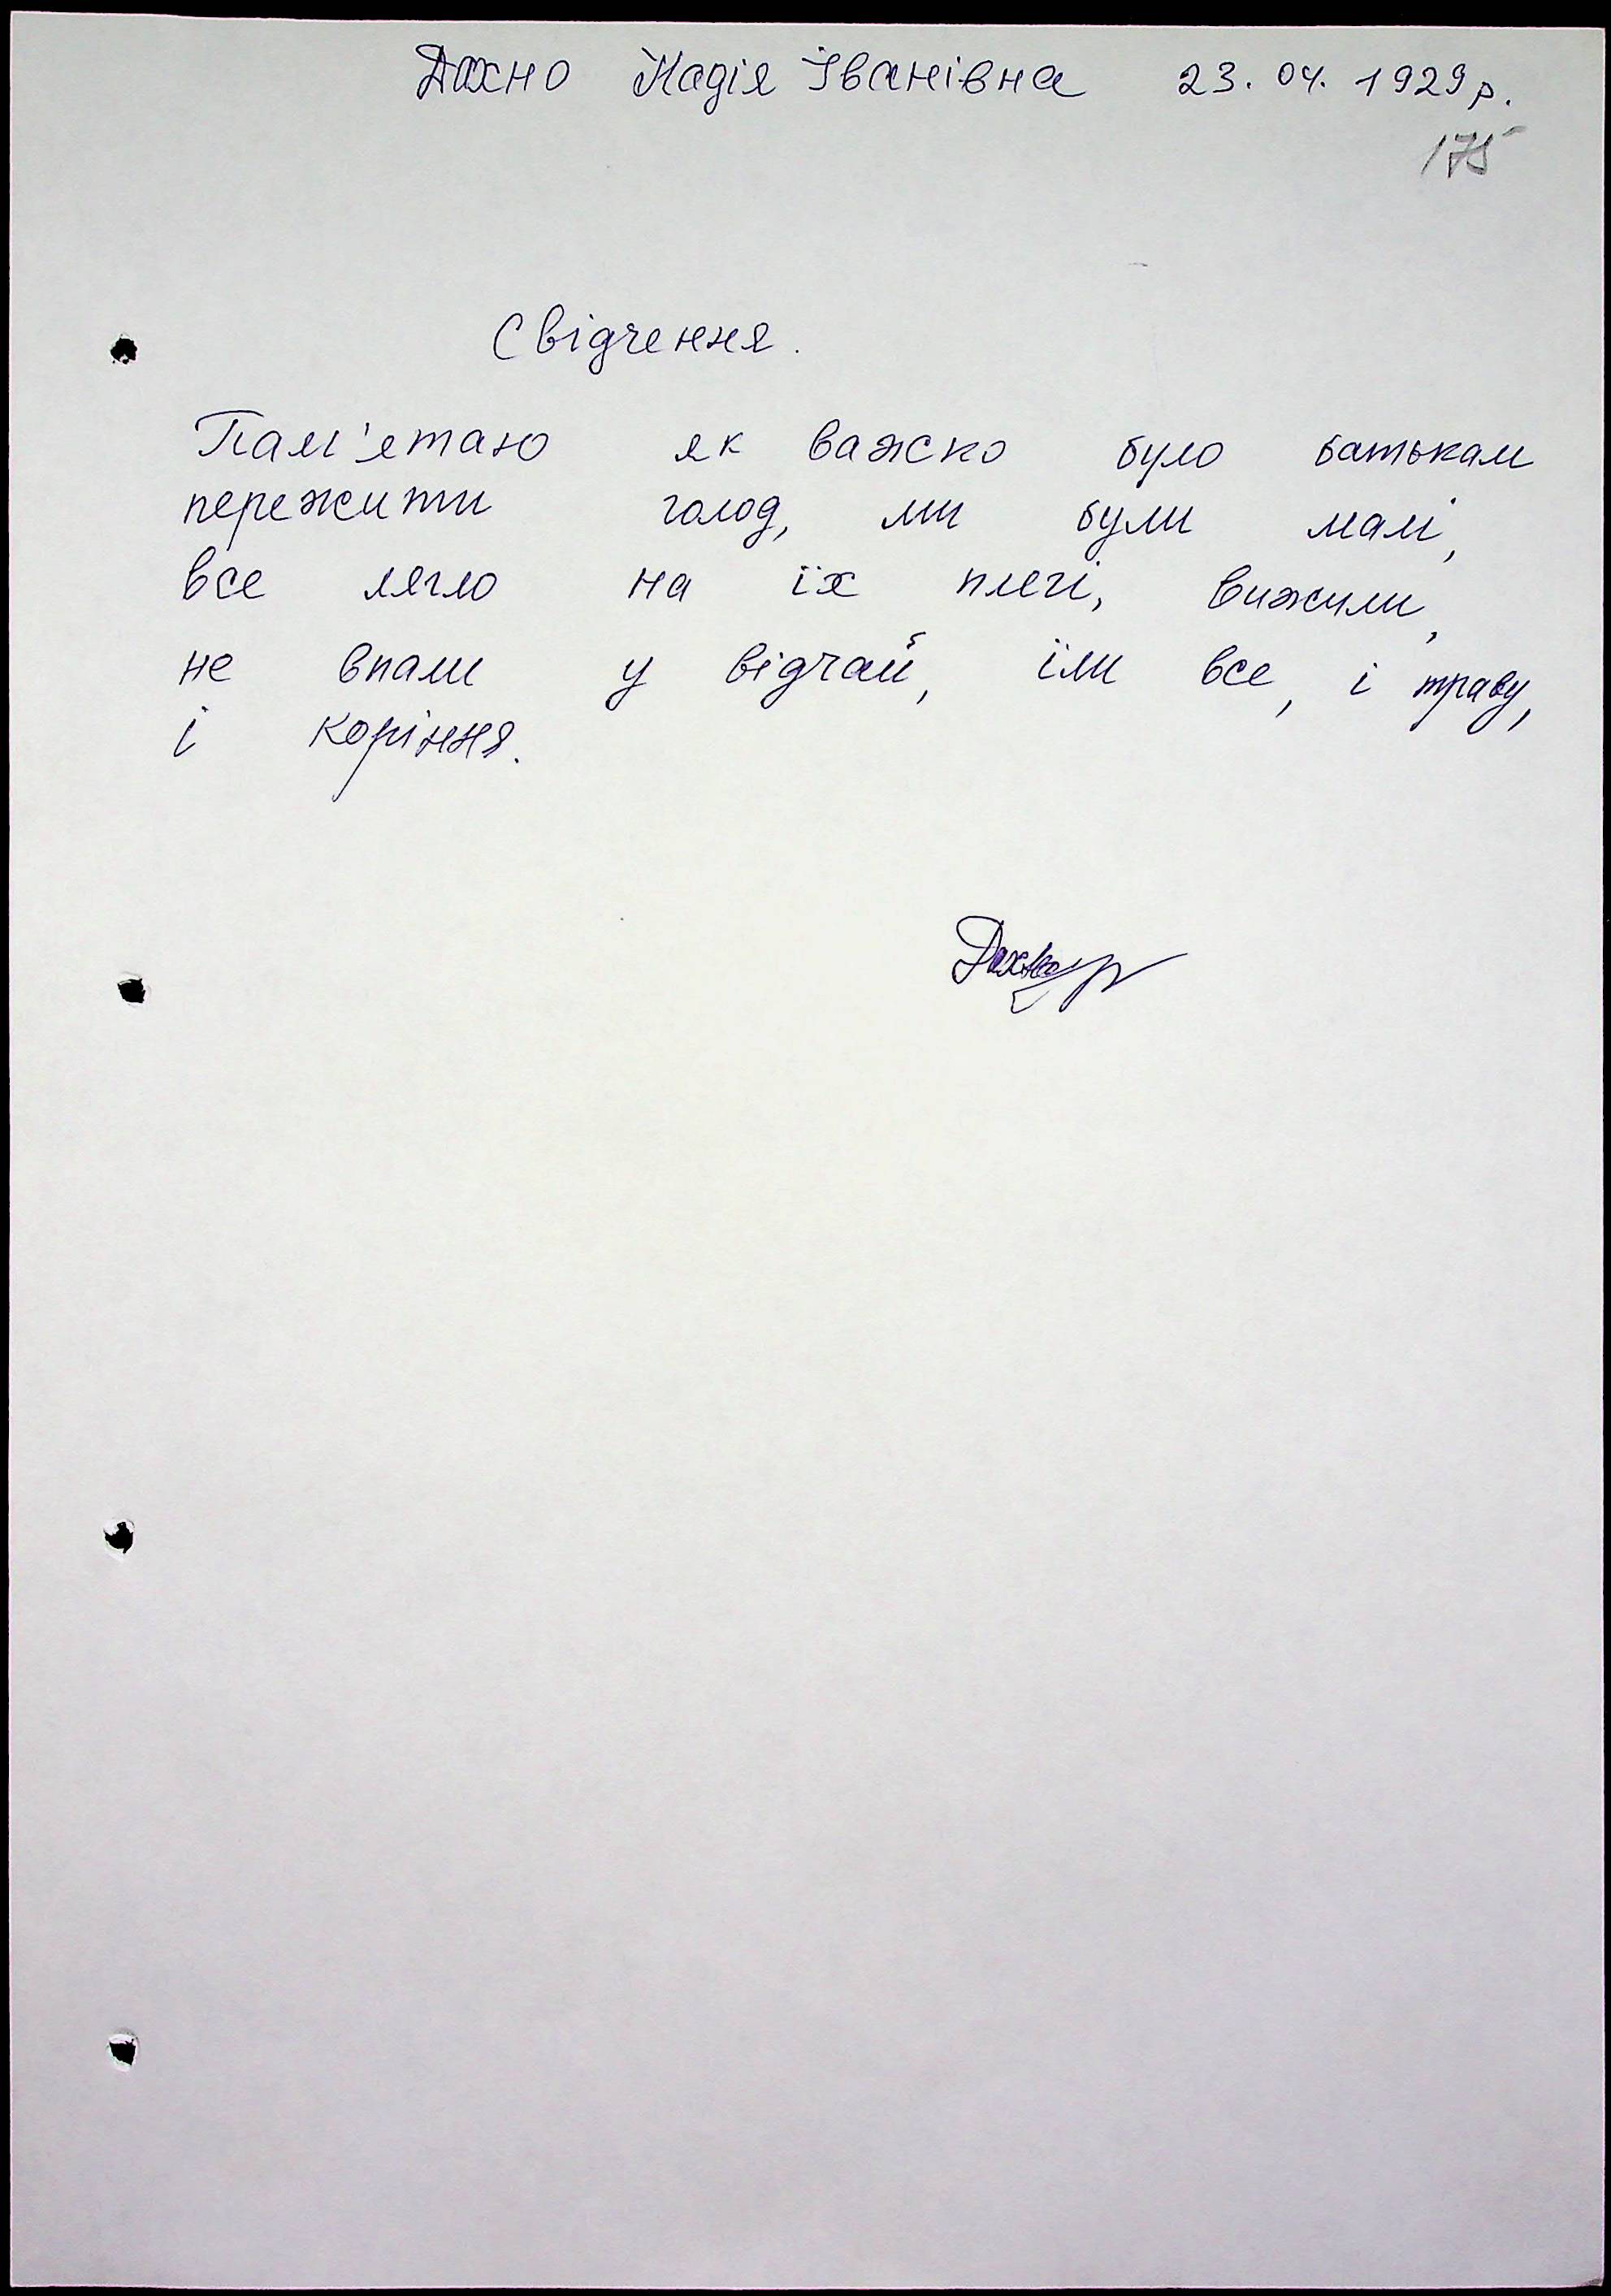 Дахно Надія Іванівна 23. 04. 1929 р.
175
Свідчення.
Пам'ятаю як важко було батькам
пережити голод, ми були малі,
все лягло на їх плечі, вижили,
не впали у відчай, їли все, і траву,
і коріння.
Дахно